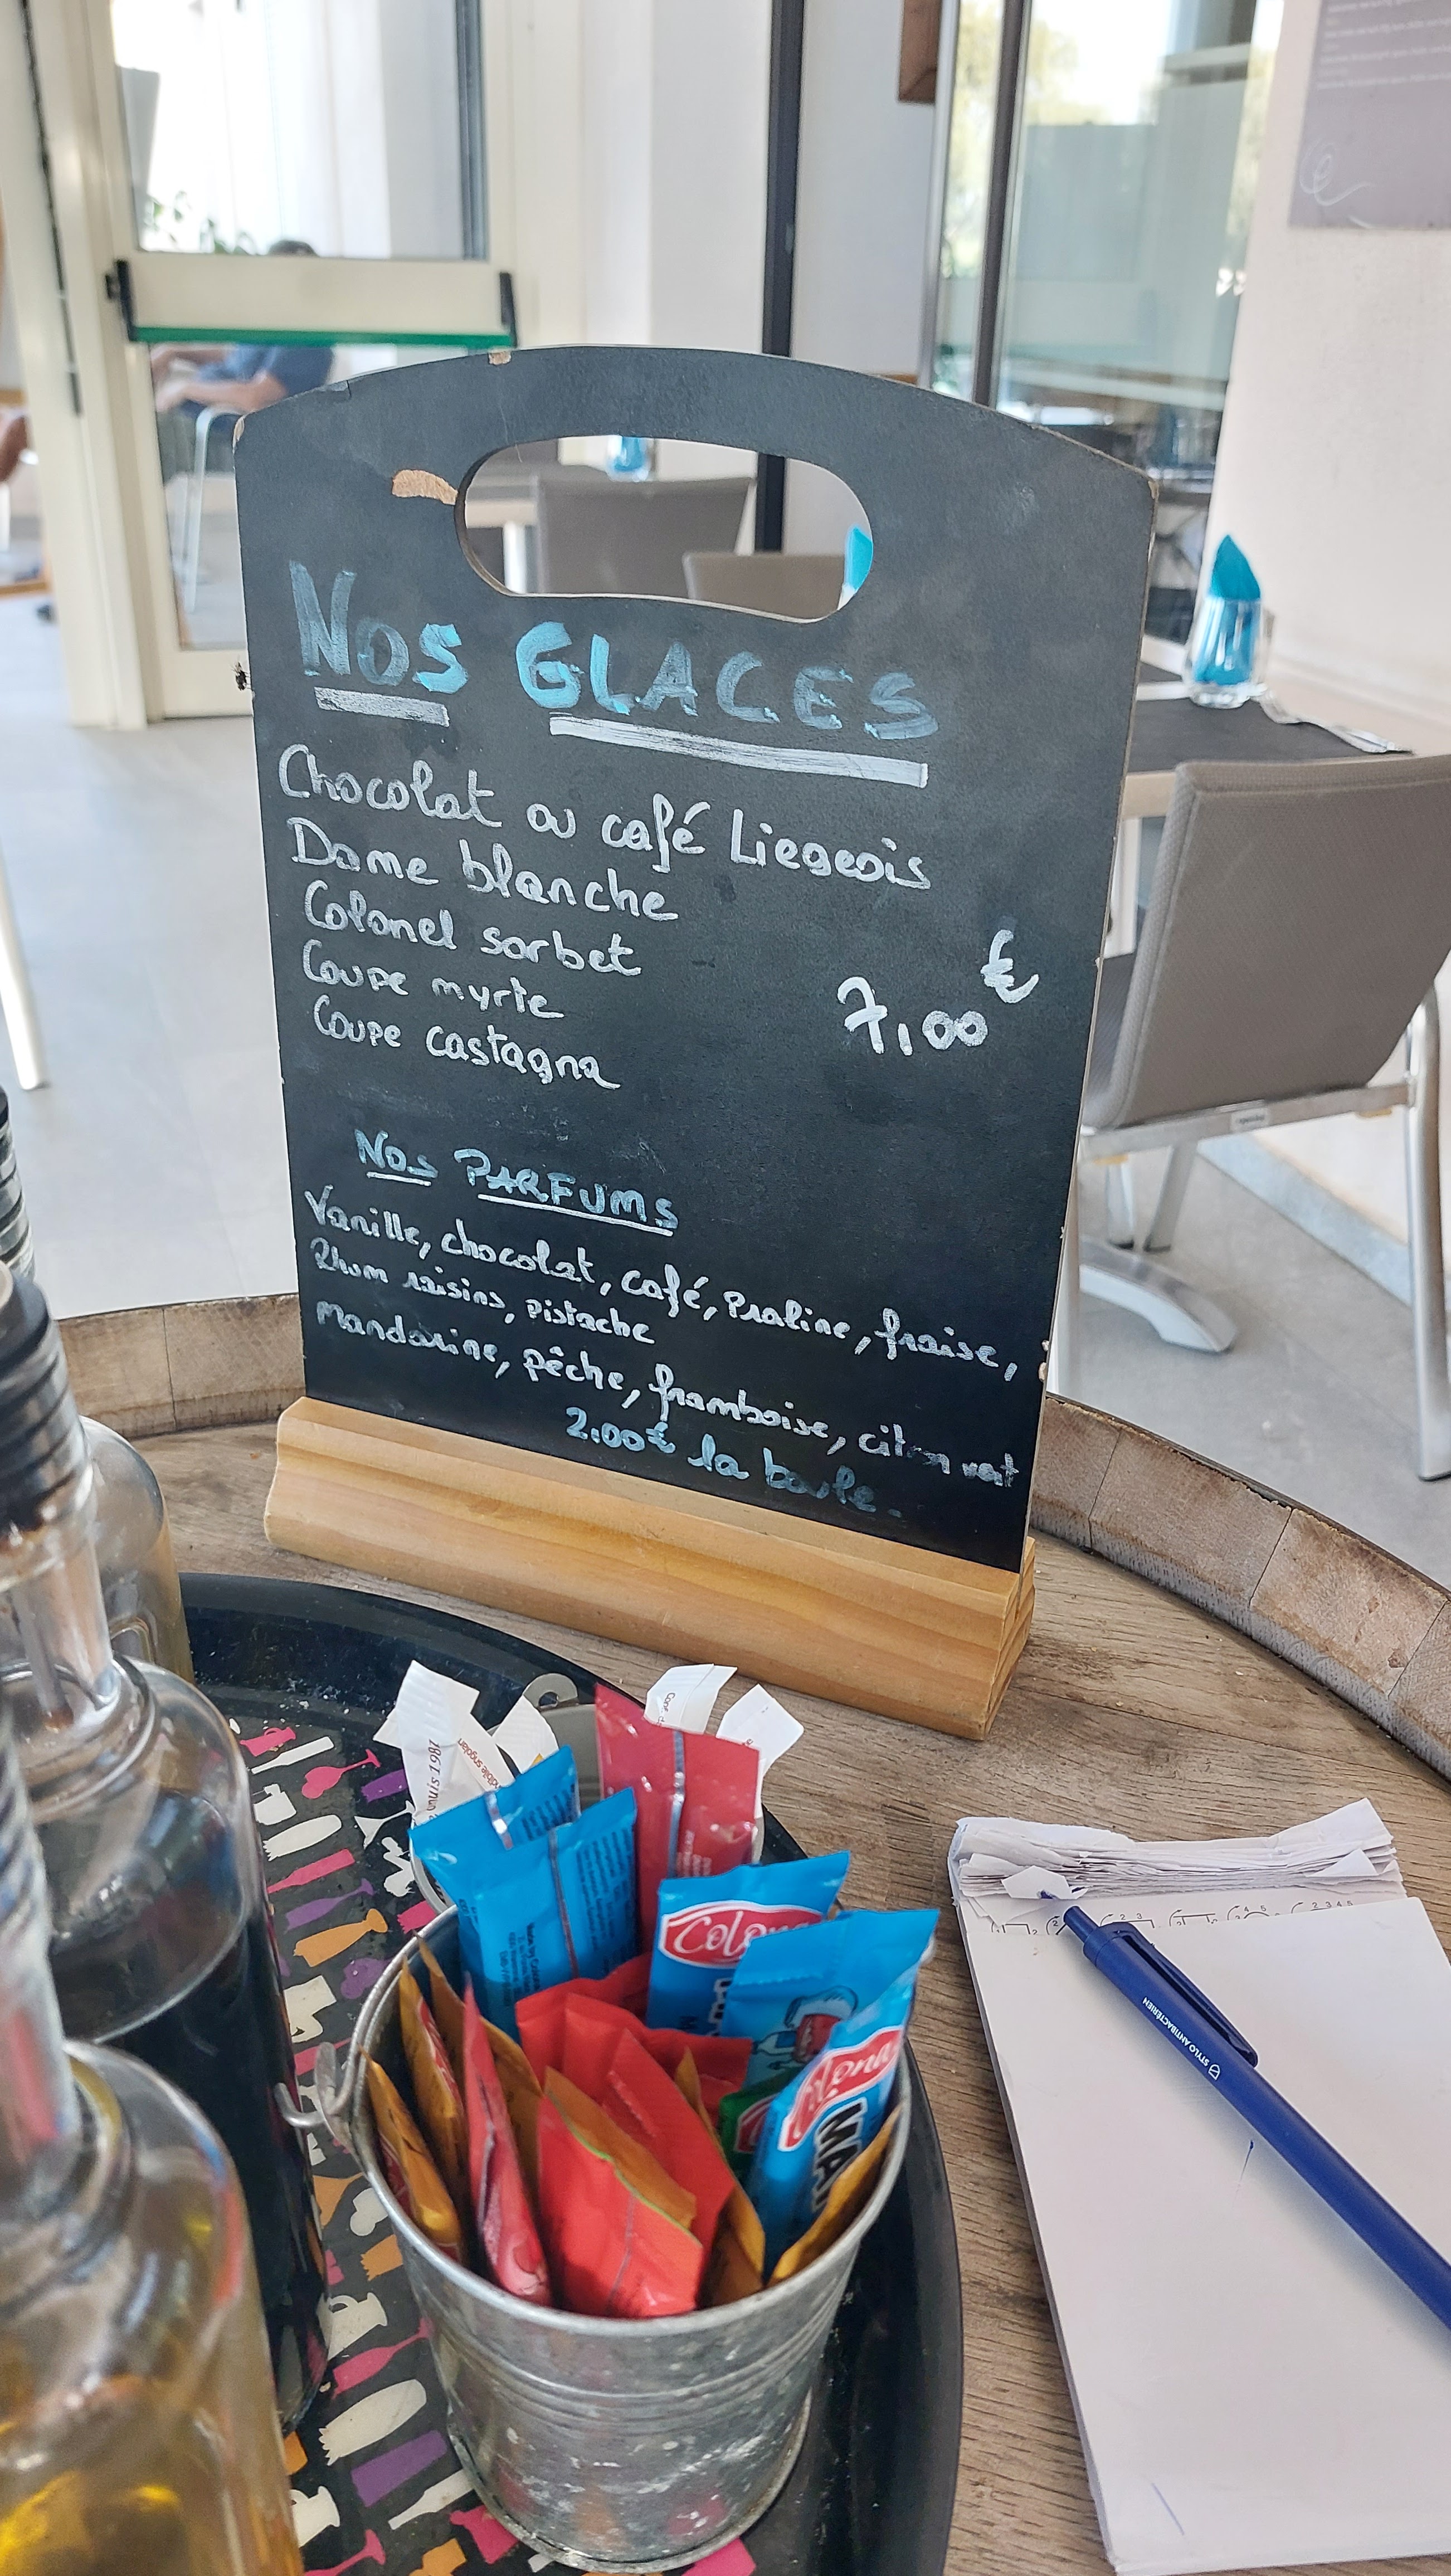 NOS GLACES
Chocolat ou café Liegeois
Dame blanche
Colonel sorbet
Coupe myrte
Coupe castagna
7,00 €
NOS PARFUMS
Vanille, chocolat, café, Praline, fraise,
Rhum raisins, pistache
Mandarine, pêche, framboise, citron vert
2.00€ la boule.
depuis 1987
Colona
Colona
STYLO ANTIBACTÉRIEN